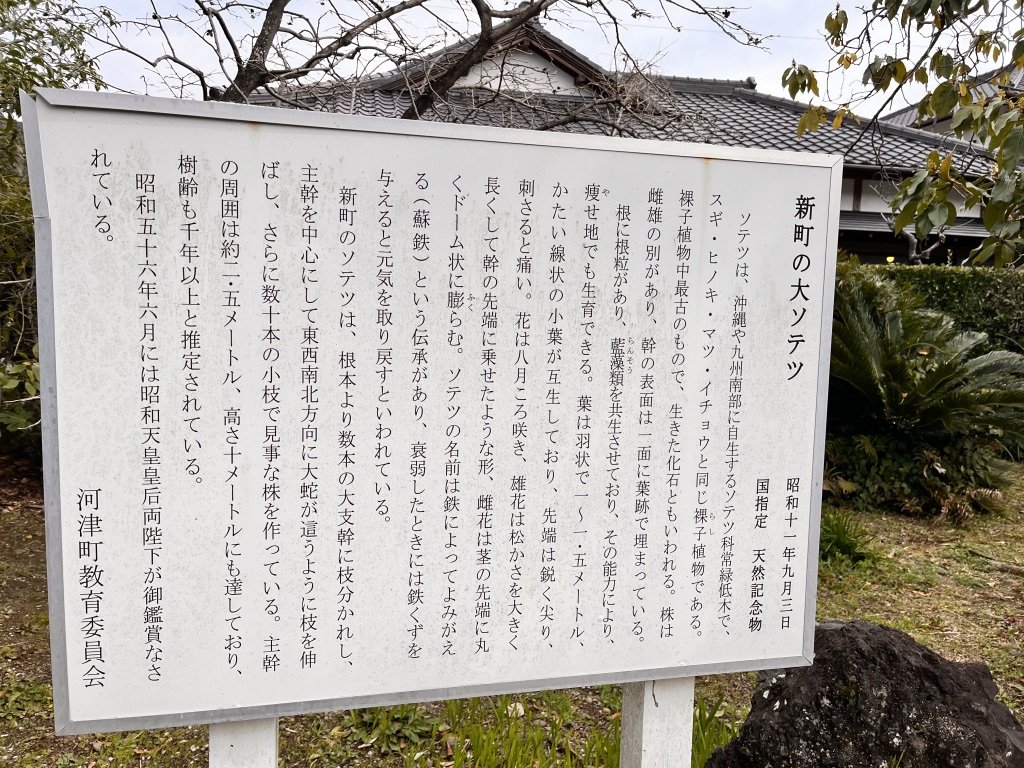 新町の大ソテツ
昭和十一年九月三日
国指定　天然記念物
ソテツは、沖縄や九州南部に自生するソテツ科常緑低木で、
スギ・ヒノキ・マツ・イチョウと同じ裸子植物である。
らし
裸子植物中最古のもので、生きた化石ともいわれる。株は
雌雄の別があり、幹の表面は一面に葉跡で埋まっている。
根に根粒があり、藍藻類を共生させており、その能力により、
らんそう
痩せ地でも生育できる。葉は羽状で一〜一・五メートル、
や
かたい線状の小葉が互生しており、先端は鋭く尖り、
刺さると痛い。花は八月ころ咲き、雄花は松かさを大きく
長くして幹の先端に乗せたような形、雌花は茎の先端に丸
くドーム状に膨らむ。ソテツの名前は鉄によってよみがえ
ふく
る（蘇鉄）という伝承があり、衰弱したときには鉄くずを
与えると元気を取り戻すといわれている。
新町のソテツは、根本より数本の大支幹に枝分かれし、
主幹を中心にして東西南北方向に大蛇が這うように枝を伸
ばし、さらに数十本の小枝で見事な株を作っている。主幹
の周囲は約二・五メートル、高さ十メートルにも達しており、
樹齢も千年以上と推定されている。
昭和五十六年六月には昭和天皇皇后両陛下が御鑑賞なさ
れている。
河津町教育委員会